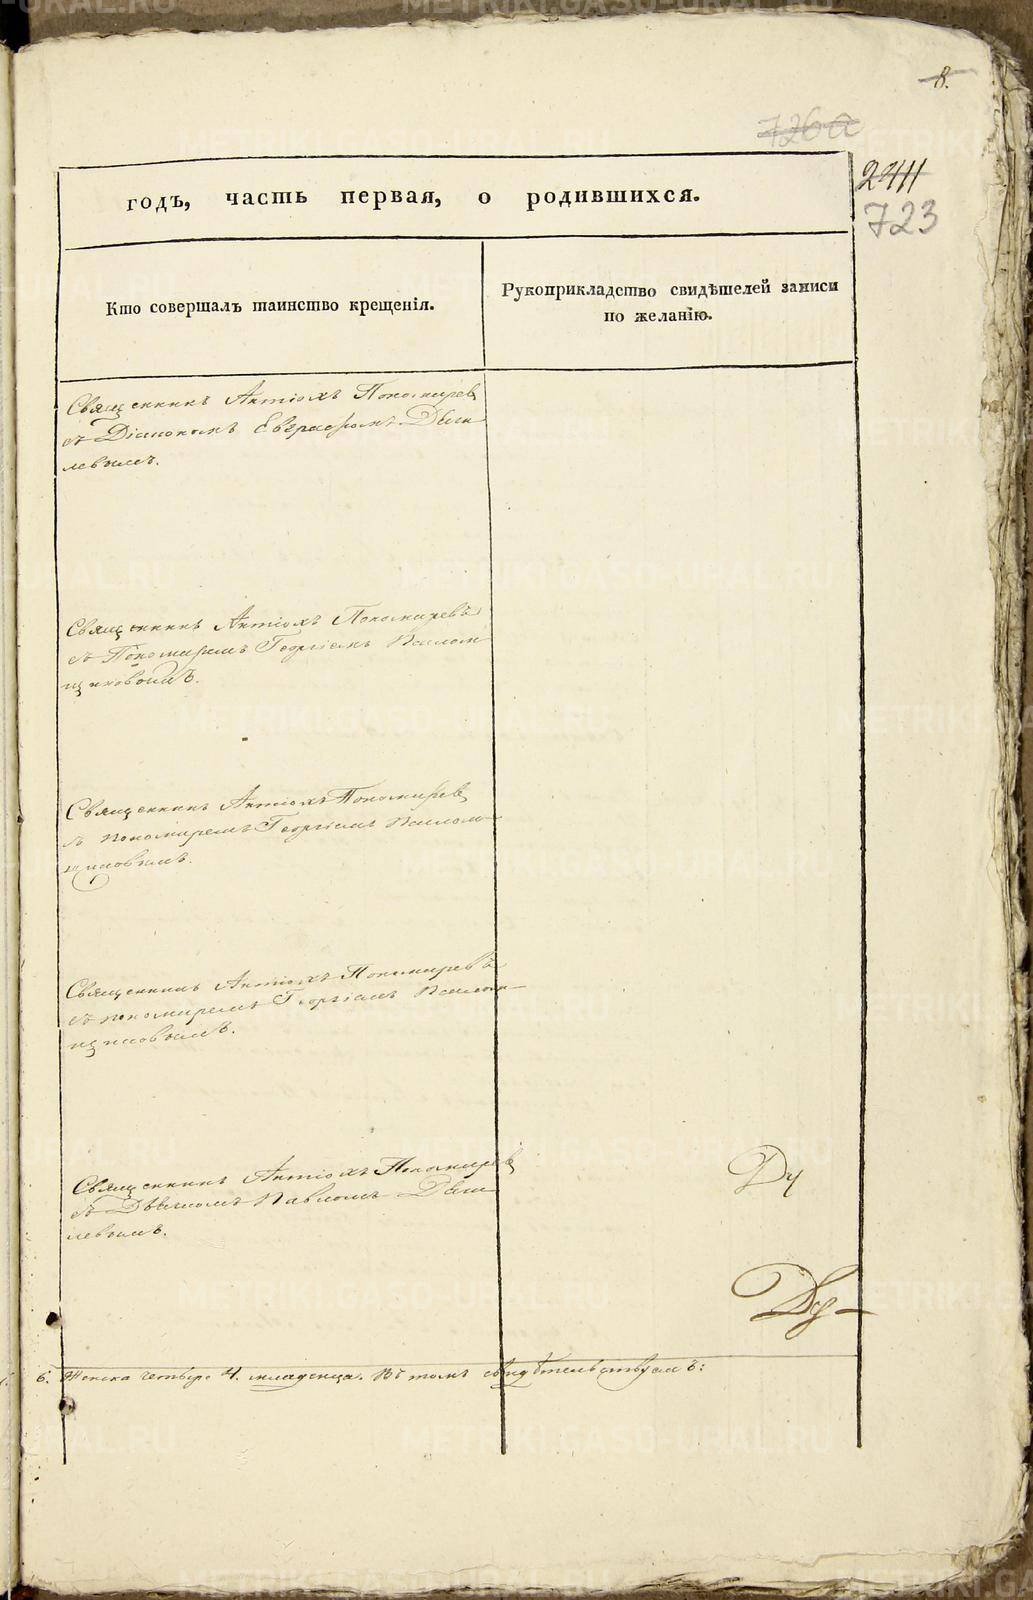 8.
726а
2411
723
годъ, часть первая, о родившихся.
Кто совершалъ таинство крещенія.
Рукоприкладство свидѣтелей записи
по желанію.
Священникъ Антіохъ Пономарев
съ Діакономъ Евграфомъ
левымъ.
Священникъ Антіохъ Пономаревъ
съ Пономаремъ Георгіемъ Калом
щиковымъ.
Священникъ Антіохъ Пономарев
съ пономаремъ Георгіемъ Калом-
щиковымъ.
Священникъ Антіохъ Пономаревъ
съ пономаремъ Георгіемъ Калом-
щиковымъ.
Священникъ Антіохъ Пономарев
съ Дьячкомъ Павломъ
левымъ.
6. Женска четыре 4. младенца. Въ томъ свидѣтельствуемъ:
METRIKI.GASO-URAL.RU